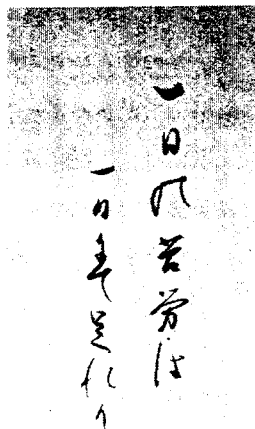 一日の苦労は
一日にて足れり